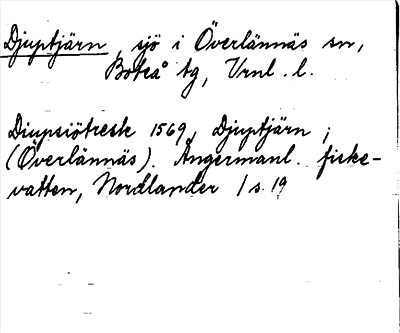 Djuptjärn, sjö i Överlännäs sn,
Boteå tg, Vrnl. l.
Diupsiötresk 1569, Djuptjärn,
(Överlännäs). Ångermanl. fiske-
vatten, Nordlander 1 s. 19